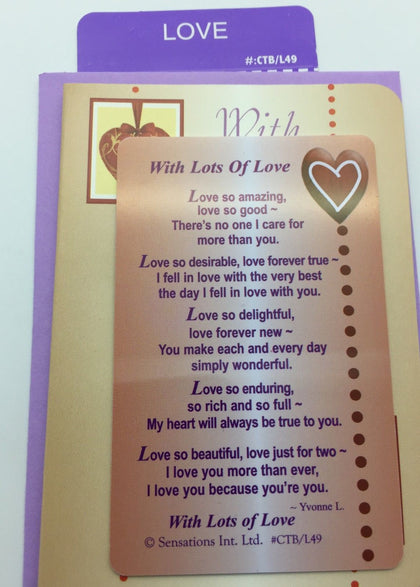 LOVE
#:CTB/L49
With
With Lots Of Love
Love so amazing,
love so good ~
There's no one I care for
more than you.
Love so desirable, love forever true ~
I fell in love with the very best
the day I fell in love with you.
Love so delightful,
love forever new ~
You make each and every day
simply wonderful.
Love so enduring,
so rich and so full ~
My heart will always be true to you.
Love so beautiful, love just for two ~
I love you more than ever,
I love you because you're you.
~ Yvonne L.
With Lots of Love
© Sensations Int. Ltd. #CTB/L49